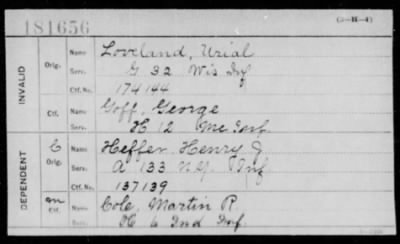 181656
INVALID
Orig. Name Loveland, Urial
Serv. G 32 Wis Inf
Ctf. No. 174144
Ctf. Name Goff, George
Serv. H 12 Me Inf.
DEPENDENT
C Orig. Name Heffer Henry J
Serv. A 133 N.Y. Inf
Ctf. No. 137139
Ctf. Name Cole, Martin R.
Serv. 6 Ind Inf.